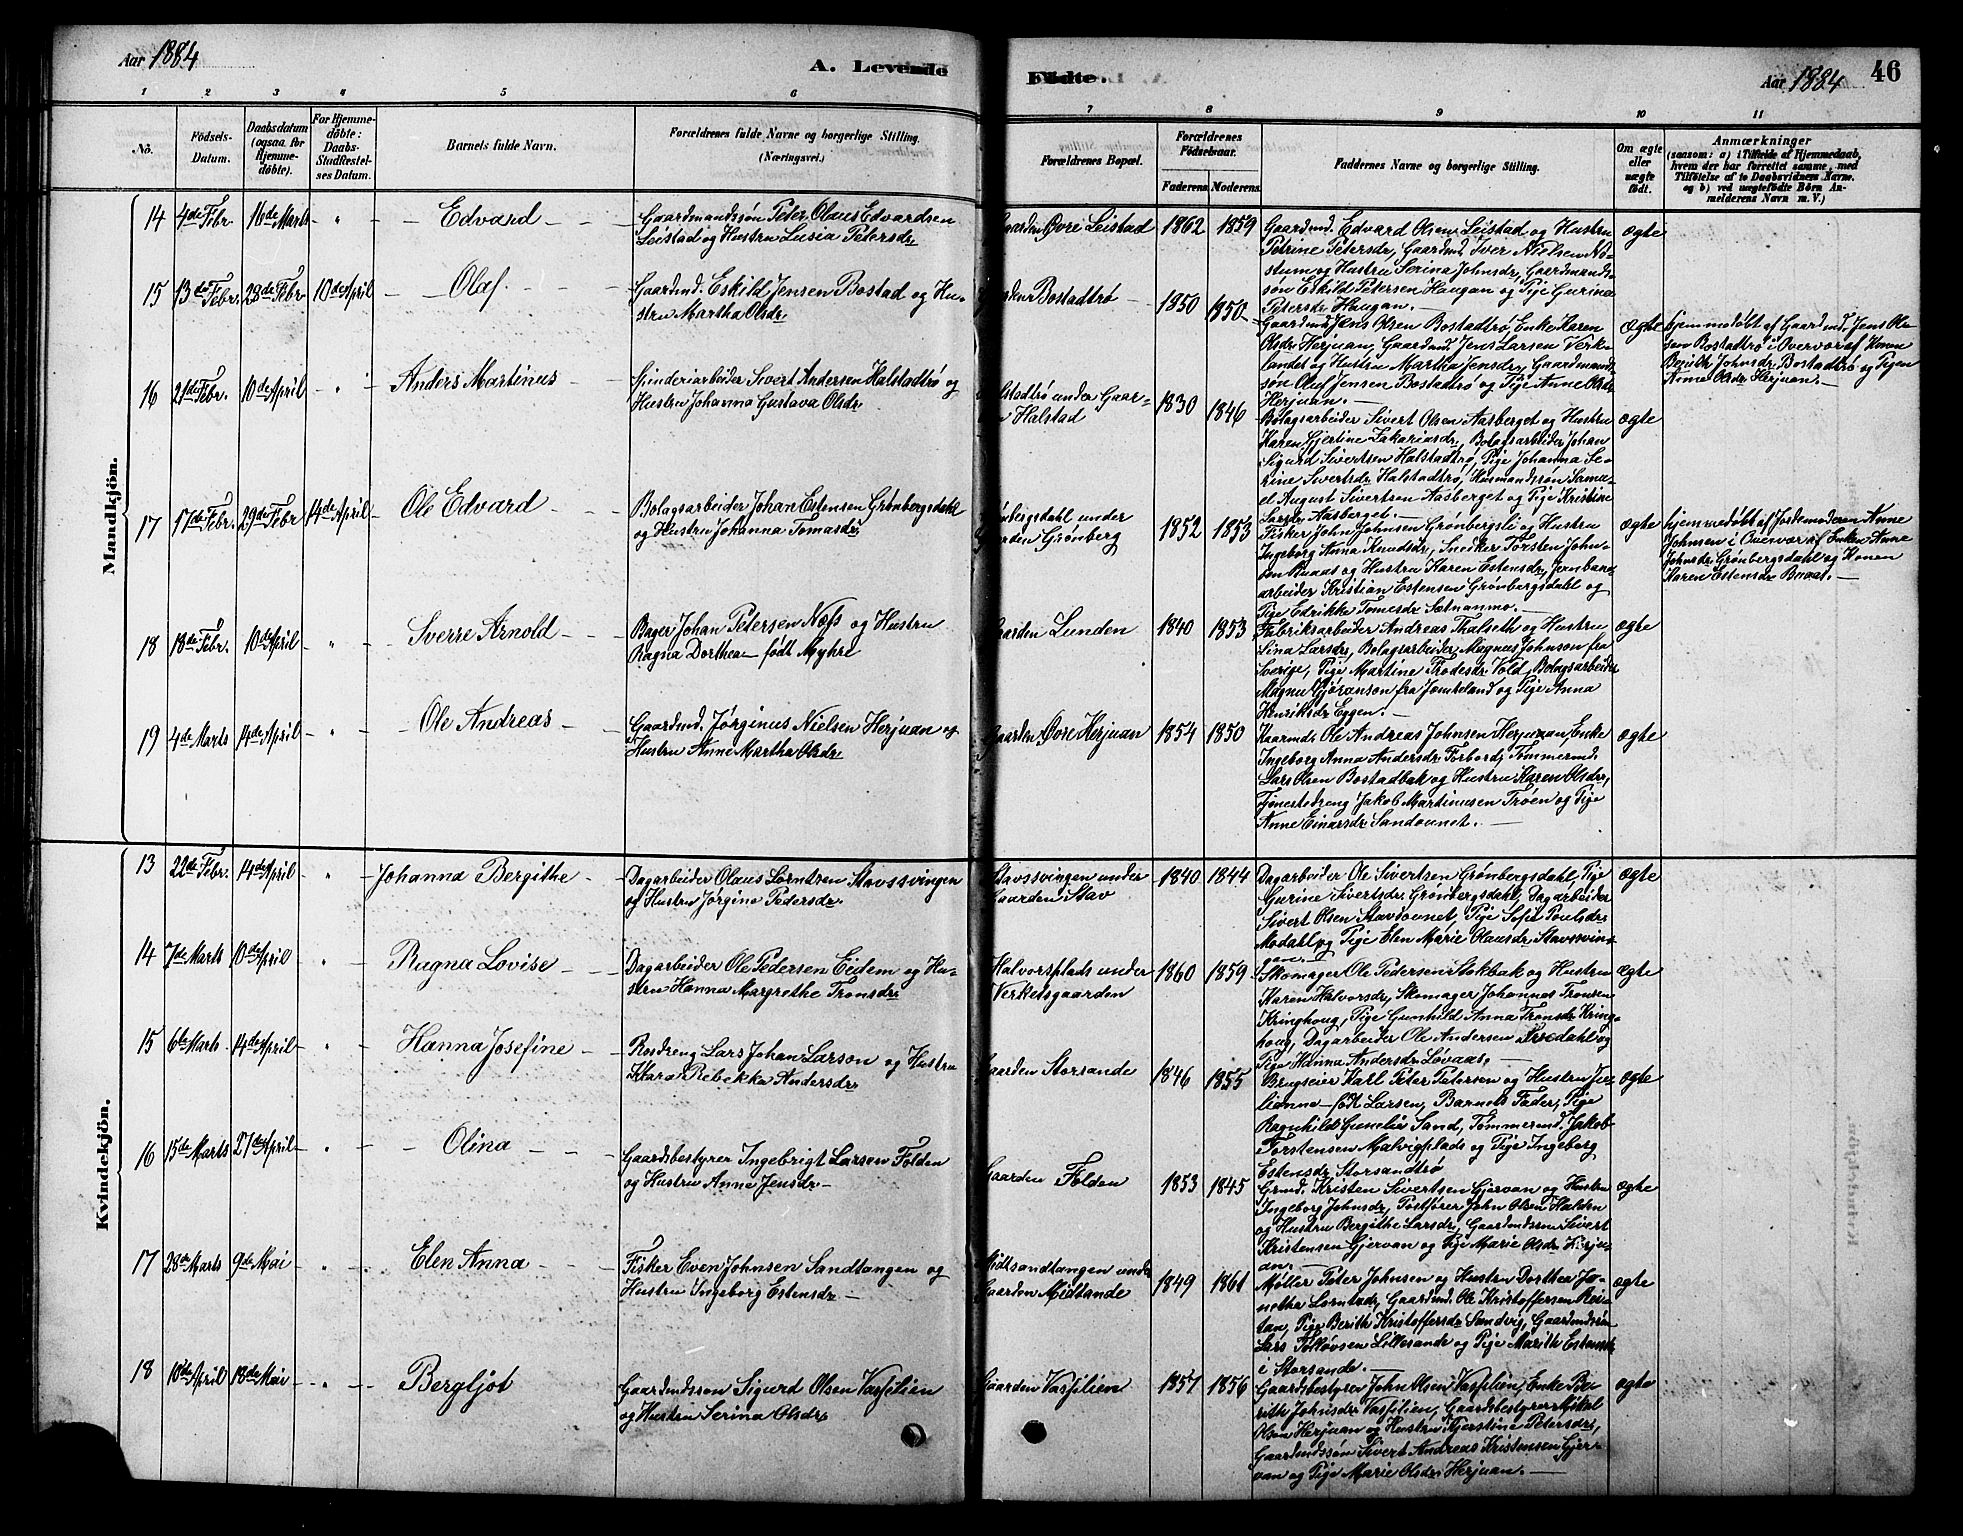 Aar 1884
A. Levende
Födte.
Aar 1884
46
1
2
3
4
5
6
7
8
9
10
11
No.
Födsels-
Datum.
Daabsdatum
(ogsaa for
Hjemme-
döbte).
For Hjemme-
döbte:
Daabs-
Stadfestel-
ses Datum.
Barnets fulde Navn.
Forældrenes fulde Navne og borgerlige Stilling.
(Næringsvei.)
Forældrenes Bopæl.
Forældrenes
Födselsaar.
Faderens
Moderens
Faddernes Navne og borgerlige Stilling.
Om ægte
eller
uægte
födt.
Anmærkninger
(saasom: a) i Tilfælde af Hjemmedaab,
hvem der har forrettet samme, med
Tilföielse af to Daabsvidners Navne.
og b) ved uægtefödte Börn An-
melderens Navn m. V.)
Mandkjön.
14 4de Febr 16de Marts - " - Edvard
Gaardmandssön Peter Olaus Edvardsen
Leistad og Hustru Lusia Petersdr
Gaarden Övre Leistad 1862 1859
Gaardmd. Edvard Olsen Leistad og Hustru
Petrine Petersdr, Gaardmd. Iver Nielsen No-
stum og Hustru Serina Johnsdr, Gaardmands-
sön Eskild Petersen Haugan og Pige Gurina
Petersdr Haugan.
ægte
15 13de Febr. 28de Febr 10de April - Olaf.
Gaardmd. Eskild Jensen Bostad og Hu-
stru Martha Olsdr
Bostadtrö 1850 1850
Gaardmd Jens Olsen Bostadtrö, Enke Karen
Olsdr Herjuan, Gaardmd. Jens Larsen Verk-
landet og Hustru Martha Jensdr, Gaardmands-
sön Oluf Jensen Bostadtrö og Pige Anne Olsdr
Herjuan.
ægte
hjemmedöbt af Gaardmd. Jens Ol-
sen Bostadtrö i Overvær af Konen
Berith Johnsdr Bostadtrö og Pigen
Anne Olsdr Herjuan.
16 21de Febr. 10de April - " - Anders Martinus
Spinderiarbeider Sivert Andersen Halstadtrö og
Hustru Johanna Gustava Olsdr
Halstadtrö under Gaar-
den Halstad 1830 1846
Bolagsarbeider Sivert Olsen Aasberget og Hustru
Karen Gjertine Zakariasdr, Bolagsarbeider Johan
Sigurd Sivertsen Halstadtrö, Pige Johanna Se-
rine Sivertsdr Halstadtrö, Husmandssön Samu-
el August Sivertsen Aasberget og Pige Kristine
Larsdr Aasberget.
ægte
17 17de Febr. 29de Febr 14de April Ole Edvard
Bolagsarbeider Johan Estensen Grönbergsdahl
og Hustru Johanna Tomasdr
Grönbergsdahl under
Gaarden Grönberg 1852 1853
Fisker John Johnsen Grönbergsli og Hustru
Ingeborg Anna Knudsdr, Snedker Torsten John-
sen Buaas og Hustru Karen Estensdr, Jernbane-
arbeider Kristian Estensen Grönbergsdahl og
Pige Edrikke Tomesdr Sætnanmo.
ægte
hjemmedöbt af Jordemoderen Anne
Johnsen i Overvær af Enken Anne
Johnsdr Grönbergsdahl og Konen
Karen Estensdr Buaas.
18 18de Febr. 10de April " Sverre Arnold
Bager Johan Petersen Næss og Hustru
Ragna Dorthea födt Myhre
Gaarden Lunden 1840 1853
Fabriksarbeider Andreas Thalseth og Hustru
Sina Larsdr, Bolagsarbeider Magnus Johnson fra
Sverige, Pige Martine Frodesdr Vold, Bolagsarbeider
Magnu Gjöranson fra Jemteland og Pige Anna
Henriksdr Eggen.
ægte
19 4de Marts 14de April " Ole Andreas
Gaardmd. Jörginus Nielsen Herjuan og
Hustru Anne Martha Olsdr
Gaarden Övre Herjuan 1854 1850
Kaarmd. Ole Andreas Johnsen Herjuan, Enke
Ingeborg Anna Andersdr Forbord, Tömmermd.
Lars Olsen Bostadbak og Hustru Karen Olsdr,
Tjenestedreng Jakob Martinusen Tröen og Pige
Anne Einarsdr Sandounet.
ægte
Kvindekjön.
13 22de Febr. 14de April " Johanna Bergithe
Dagarbeider Olaus Lorntsen Stavssvingen
og Hustru Jörgine Pedersdr
Stavssvingen under
Gaarden Stav 1840 1844
Dagarbeider Ole Sivertsen Grönbergsdahl, Pige
Gurine Sivertsdr Grönbergsdahl, Dagarbeider
Sivert Olsen Stavdounet, Pige Sofie Poulsdr
Modahl og Pige Elen Marie Olausdr Stavssvin-
gen.
ægte
14 7de Marts 10de April " Ragna Lovise
Dagarbeider Ole Pedersen Eidem og Hu-
stru Hanna Margrethe Tronsdr
Halvorsplads under
Verketsgaarden 1860 1859
Skomager Ole Pedersen Stokbak og Hustru
Karen Halvorsdr, Skomager Johannes Tronsen
Kringhoug, Pige Gunhild Anna Tronsdr Kring-
houg, Dagarbeider Ole Andersen og
Pige Hanna Andersdr Lövaas.
ægte
15 6te Marts 14de April " Hanna Josefine
Rosdreng Lars Johan Larson og Hustru
Klara Rebekka Andersdr
Gaarden Storsande 1846 1855
Brugseier Karl Peter Petersen og Hustru Ju-
lianne födt Larsen, Barnets Fader, Pige
Ragnhild Gunelie Sand, Tömmermd. Jakob
Torstensen Malvigplads og Pige Ingeborg
Estensdr Storsandtrö
ægte
16 15de Marts 27de April " Olina
Gaardsbestyrer Ingebrigt Larsen Folden
og Hustru Anne Jensdr
Gaarden Folden 1853 1845
Grmd. Kristen Sivertsen Gjervan og Hustru
Ingeborg Johnsdr, Postförer John Olsen Halden
og Hustru Bergithe Larsdr, Gaardmdssön Sivert
Kristensen Gjervan og Pige Marie Olsdr Herju-
an.
ægte
17 28de Marts 9de Mai " Elen Anna
Fisker Even Johnsen Sandtangen og
Hustru Ingeborg Estensdr
Midtsandtangen under
Gaarden Midtsande 1849 1861
Möller Peter Johnsen og Hustru Dorthea Ja-
netha Lorntsdr, Gaardmd. Ole Kristoffersen Rei-
tan, Pige Berith Kristoffersdr Sandvig, Gaardmdssön
Lars Tollövsen Lillesande og Pige Marith Estensdr
i Storsande.
ægte
18 10de April 18de Mai " Bergljot
Gaardmdssön Sigurd Olsen Vassilien
og Hustru Serina Olsdr
Gaarden Vassilien 1857 1856
Gaardsbestyrer John Olsen Vassilien, Enke Be-
rith Johnsdr Vassilien, Gaardsbestyrer Mikal
Olsen Herjuan og Hustru Kjerstine Petersdr,
Gaardmdssön Sivert Andreas Kristensen Gjer-
van og Pige Marie Olsdr Herjuan.
ægte